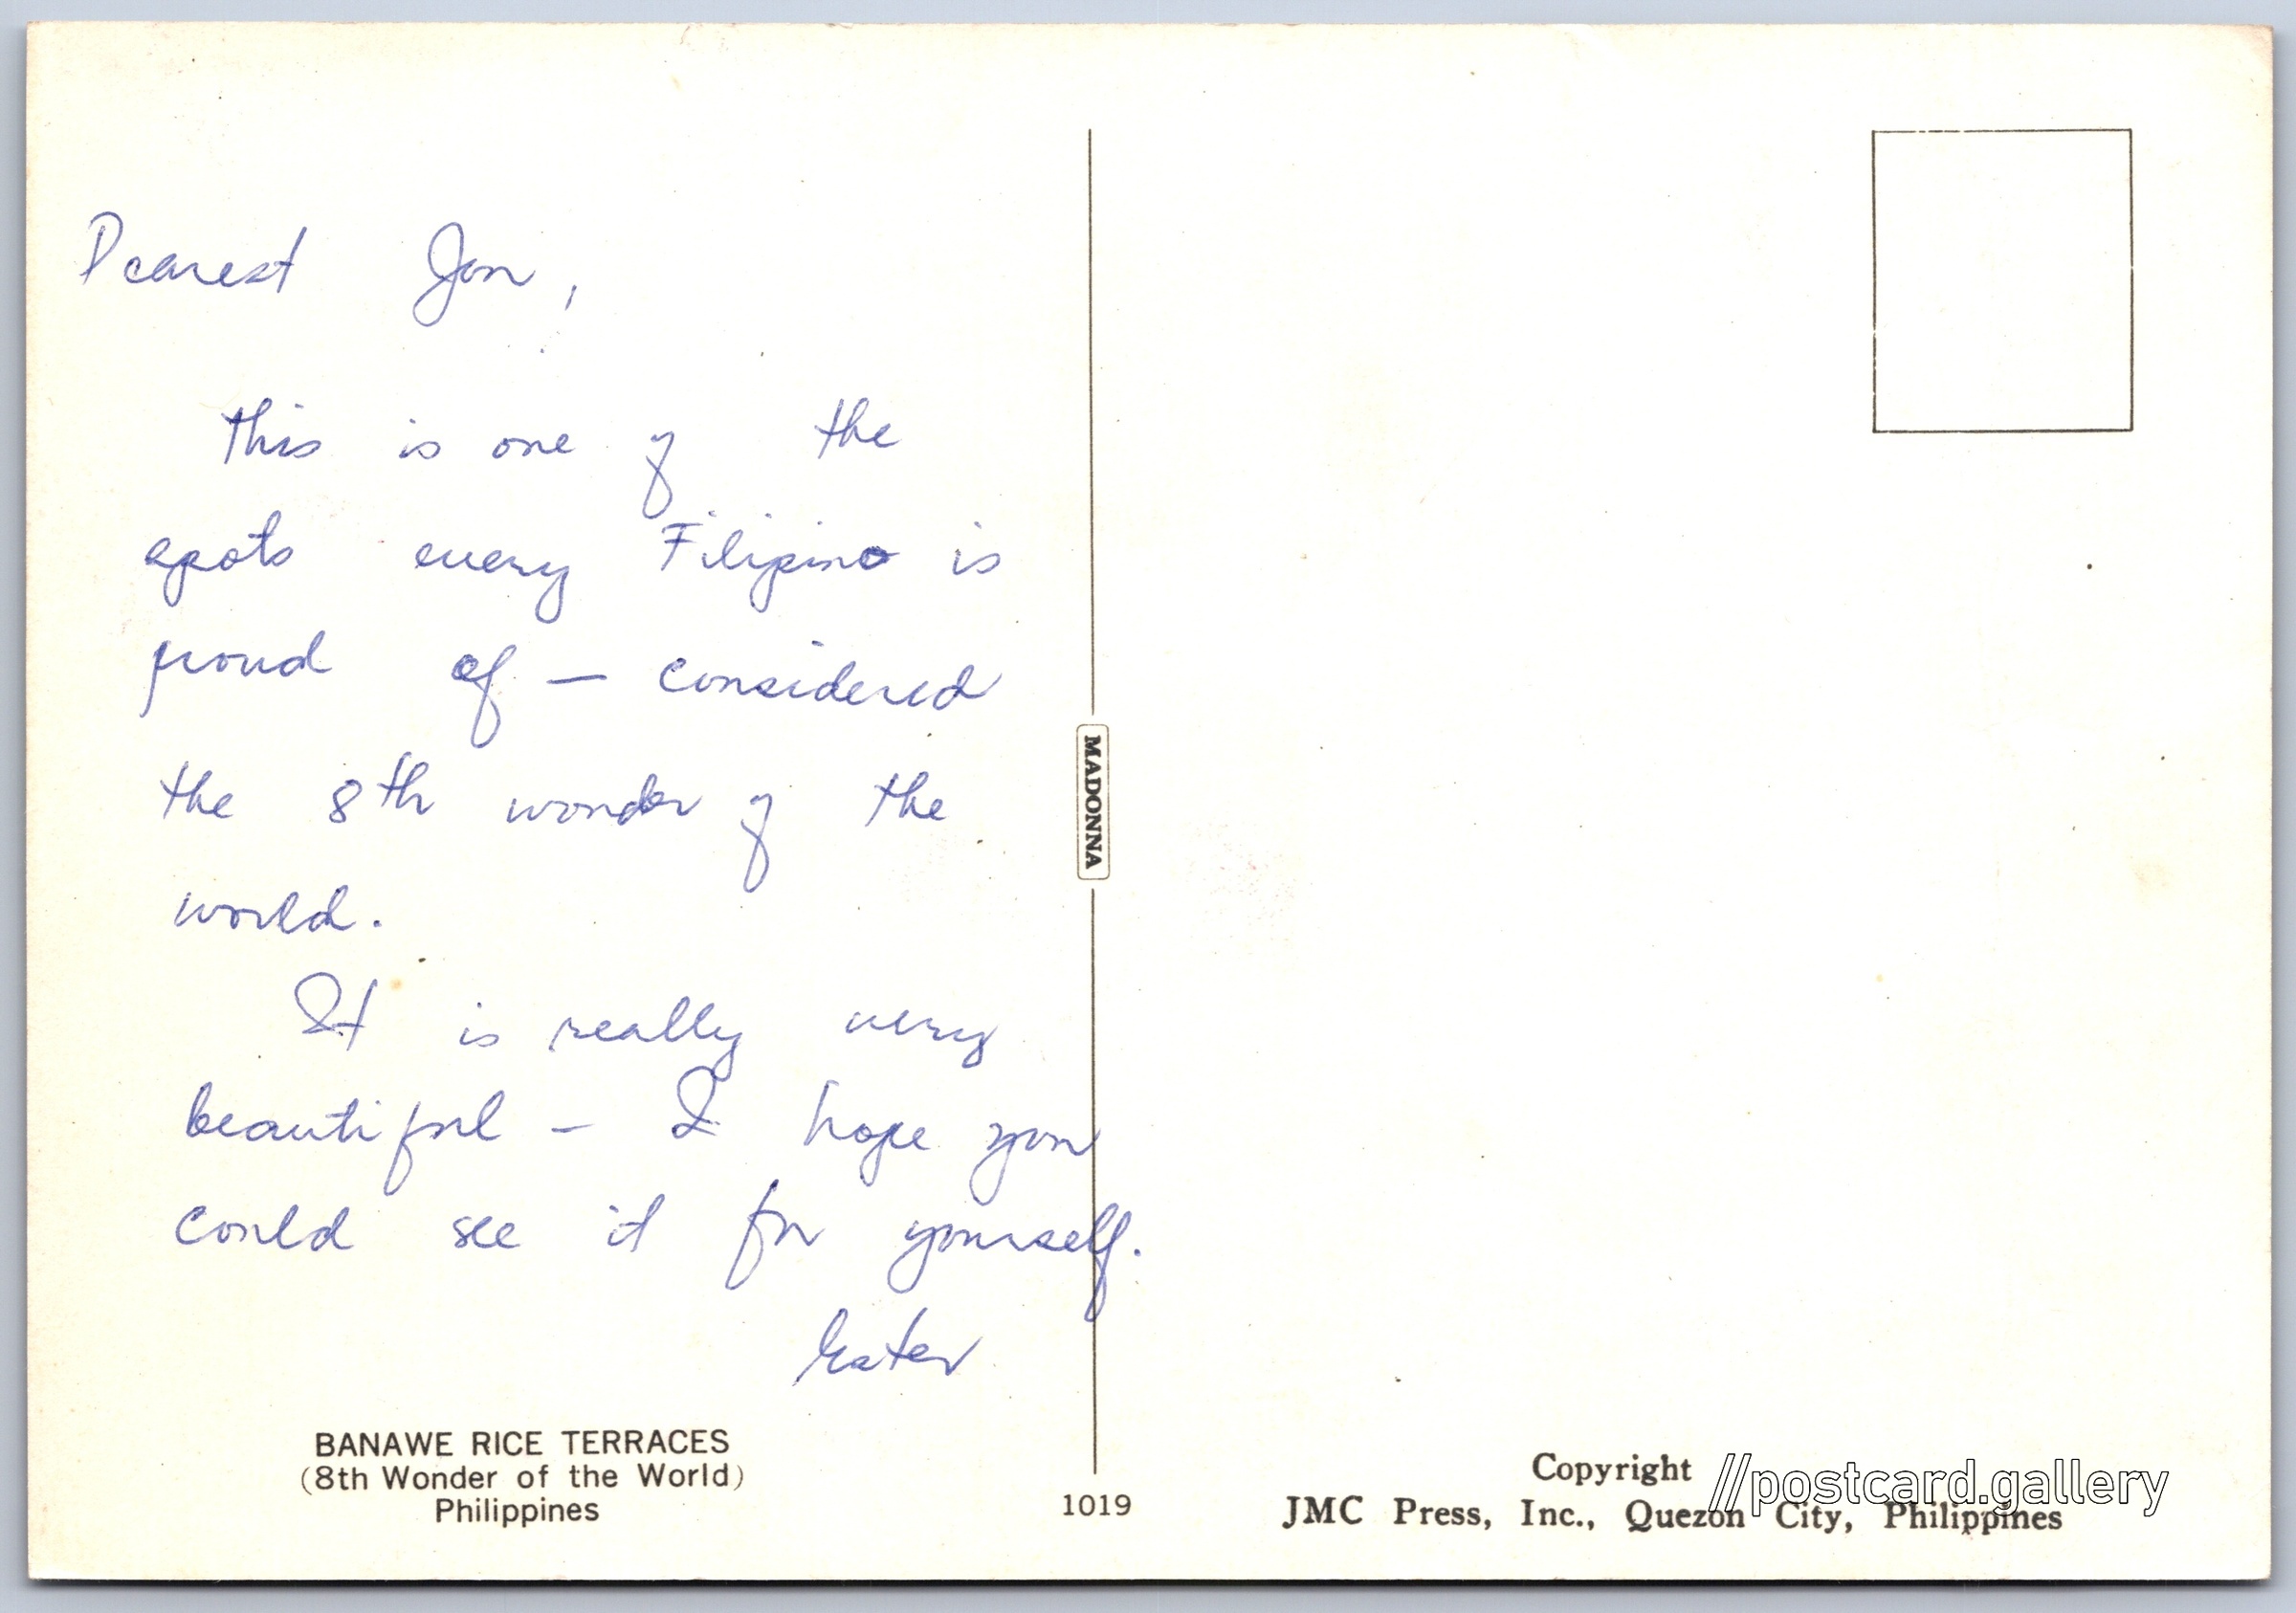 Dearest Jon,
This is one of the
spots every Filipino is
proud of — considered
the 8th wonder of the
world.
It is really very
beautiful – I hope you
could see it for yourself.
BANAWE RICE TERRACES
(8th Wonder of the World)
Philippines
MADONNA
1019
Copyright
JMC Press, Inc., Quezon City, Philippines
//postcard.gallery